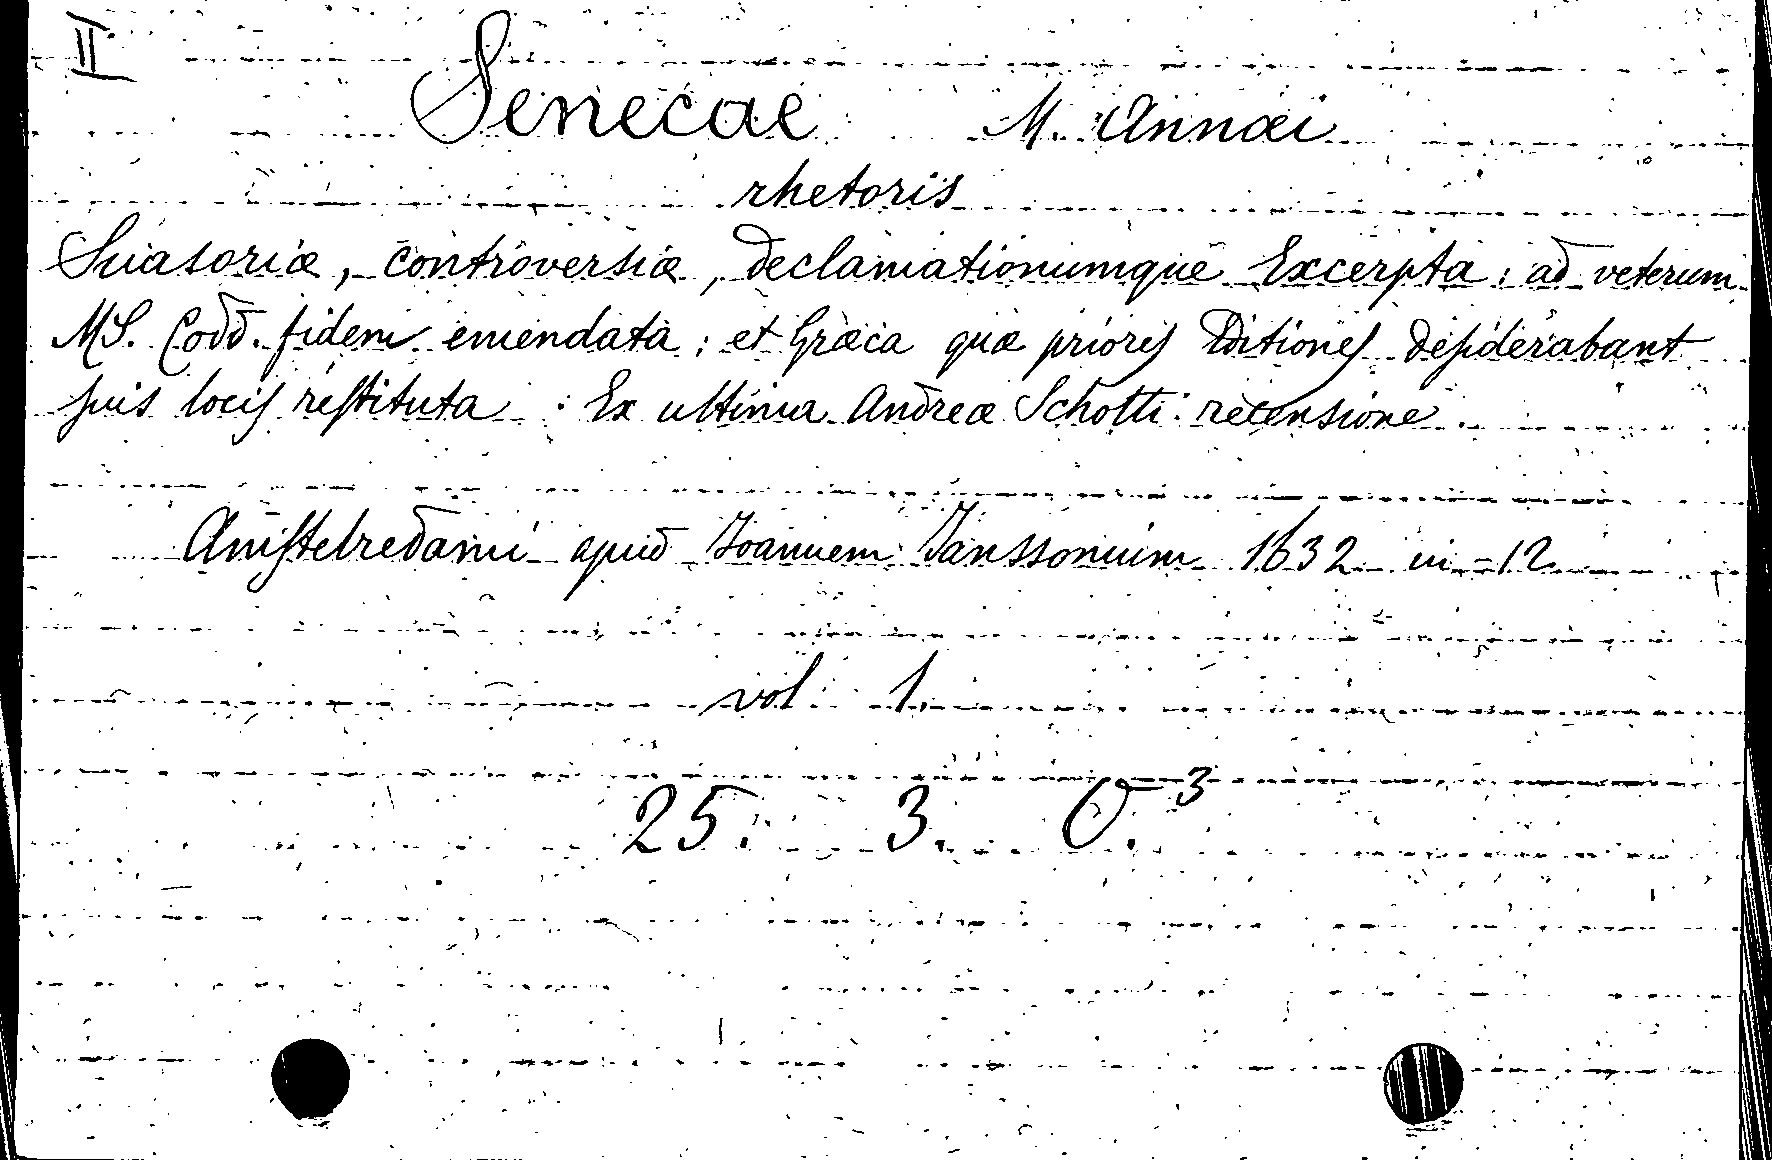 II
Senecae M. Annæi
rhetoris
Suasoriæ, controversiæ, declamationumque Excerpta; ad veterum
MS. Codd. fidem emendata; et Græca quæ priores Editiones desiderabant
suis locis restituta: Ex ultima Andreæ Schotti recensione.
Amstelredami apud Joannem Janssonium 1632 in-12
vol 1.
25. 3. O.3